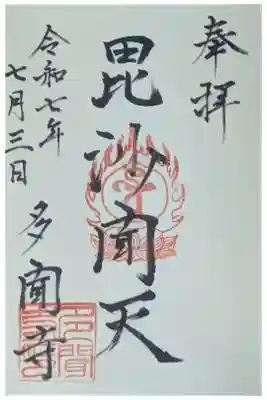 奉拝
毘沙門天
令和七年
七月三日
多聞寺